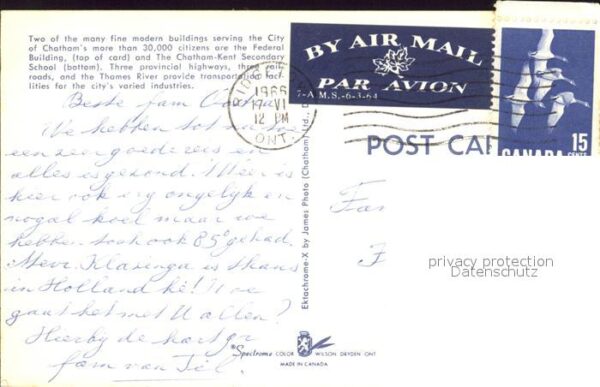 Two of the many fine modern buildings serving the City
of Chatham's more than 30,000 citizens are the Federal
Building, (top of card) and The Chatham-Kent Secondary
School (bottom). Three provincial highways, three rail-
roads, and the Thames River provide transportation faci-
lities for the city's varied industries.
BY AIR MAIL
PAR AVION
7-A.M.S.-6-3-64
1966
17 VI
12 PM
ONT.
15
CENTS
CANADA
POST CAR
Beste fam
We hebben tot nu toe
een zeer goede reis en
alles is gezond. Weer is
hier ook erg ongelijk en
nogal koel maar we
hebben toch ook 85° gehad.
Mevr. Klazinga is thans
in Holland hè! Hoe
gaat het met U allen?
Hierbij de hart. gr
fam van Tol.
Fa
F
privacy protection
Datenschutz
Ektachrome-X by James Photo (Chatham) Ltd.,
"Spectrome COLOR WILSON DRYDEN ONT
MADE IN CANADA